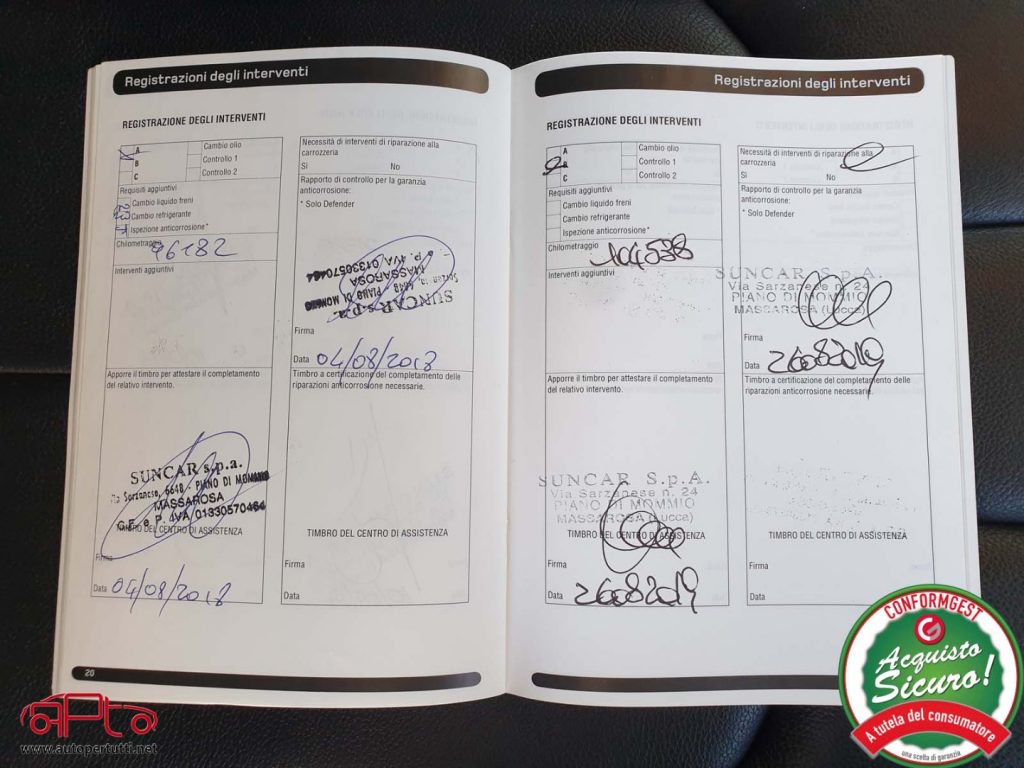 Registrazioni degli interventi
REGISTRAZIONE DEGLI INTERVENTI
A
B
C
Cambio olio
Controllo 1
Controllo 2
Requisiti aggiuntivi
Cambio liquido freni
Cambio refrigerante
Ispezione anticorrosione*
Chilometraggio 96182
Interventi aggiuntivi
Apporre il timbro per attestare il completamento
del relativo intervento.
SUNCAR s.p.a.
Via Sarzanese, 5648 - PIANO DI MOMMIO
MASSAROSA
C.F. e P. IVA 01330570464
TIMBRO DEL CENTRO DI ASSISTENZA
Firma
Data 04/08/2018
Necessità di interventi di riparazione alla
carrozzeria
Sì No
Rapporto di controllo per la garanzia
anticorrosione:
* Solo Defender
SUNCAR s.p.a.
PIANO DI MOMMIO
MASSAROSA
P. IVA 01330570464
Firma
Data 04/08/2018
Timbro a certificazione del completamento delle
riparazioni anticorrosione necessarie.
TIMBRO DEL CENTRO DI ASSISTENZA
Firma
Data
20
Registrazioni degli interventi
REGISTRAZIONE DEGLI INTERVENTI
A
B
C
Cambio olio
Controllo 1
Controllo 2
Requisiti aggiuntivi
Cambio liquido freni
Cambio refrigerante
Ispezione anticorrosione*
Chilometraggio 104538
Interventi aggiuntivi
Apporre il timbro per attestare il completamento
del relativo intervento.
SUNCAR S.p.A.
Via Sarzanese n. 24
PIANO DI MOMMIO
MASSAROSA (Lucca)
TIMBRO DEL CENTRO DI ASSISTENZA
Firma
Data 26082019
Necessità di interventi di riparazione alla
carrozzeria
Sì No
Rapporto di controllo per la garanzia
anticorrosione:
* Solo Defender
SUNCAR S.p.A.
Via Sarzanese n. 24
PIANO DI MOMMIO
MASSAROSA (Lucca)
Firma
Data 26082019
Timbro a certificazione del completamento delle
riparazioni anticorrosione necessarie.
TIMBRO DEL CENTRO DI ASSISTENZA
Firma
Data
APto
www.autopertutti.net
CONFORMGEST
Acquisto
Sicuro!
A tutela del consumatore
una scelta di garanzia